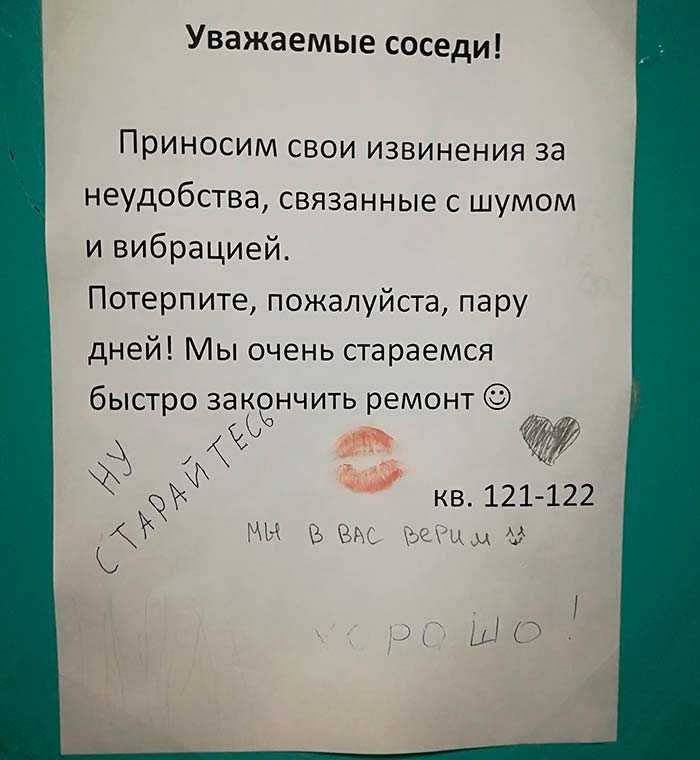 Уважаемые соседи!
Приносим свои извинения за
неудобства, связанные с шумом
и вибрацией.
Потерпите, пожалуйста, пару
дней! Мы очень стараемся
быстро закончить ремонт ☺
НУ
СТАРАЙТЕСЬ
кв. 121-122
МЫ В ВАС ВЕРИМ
ХОРОШО!